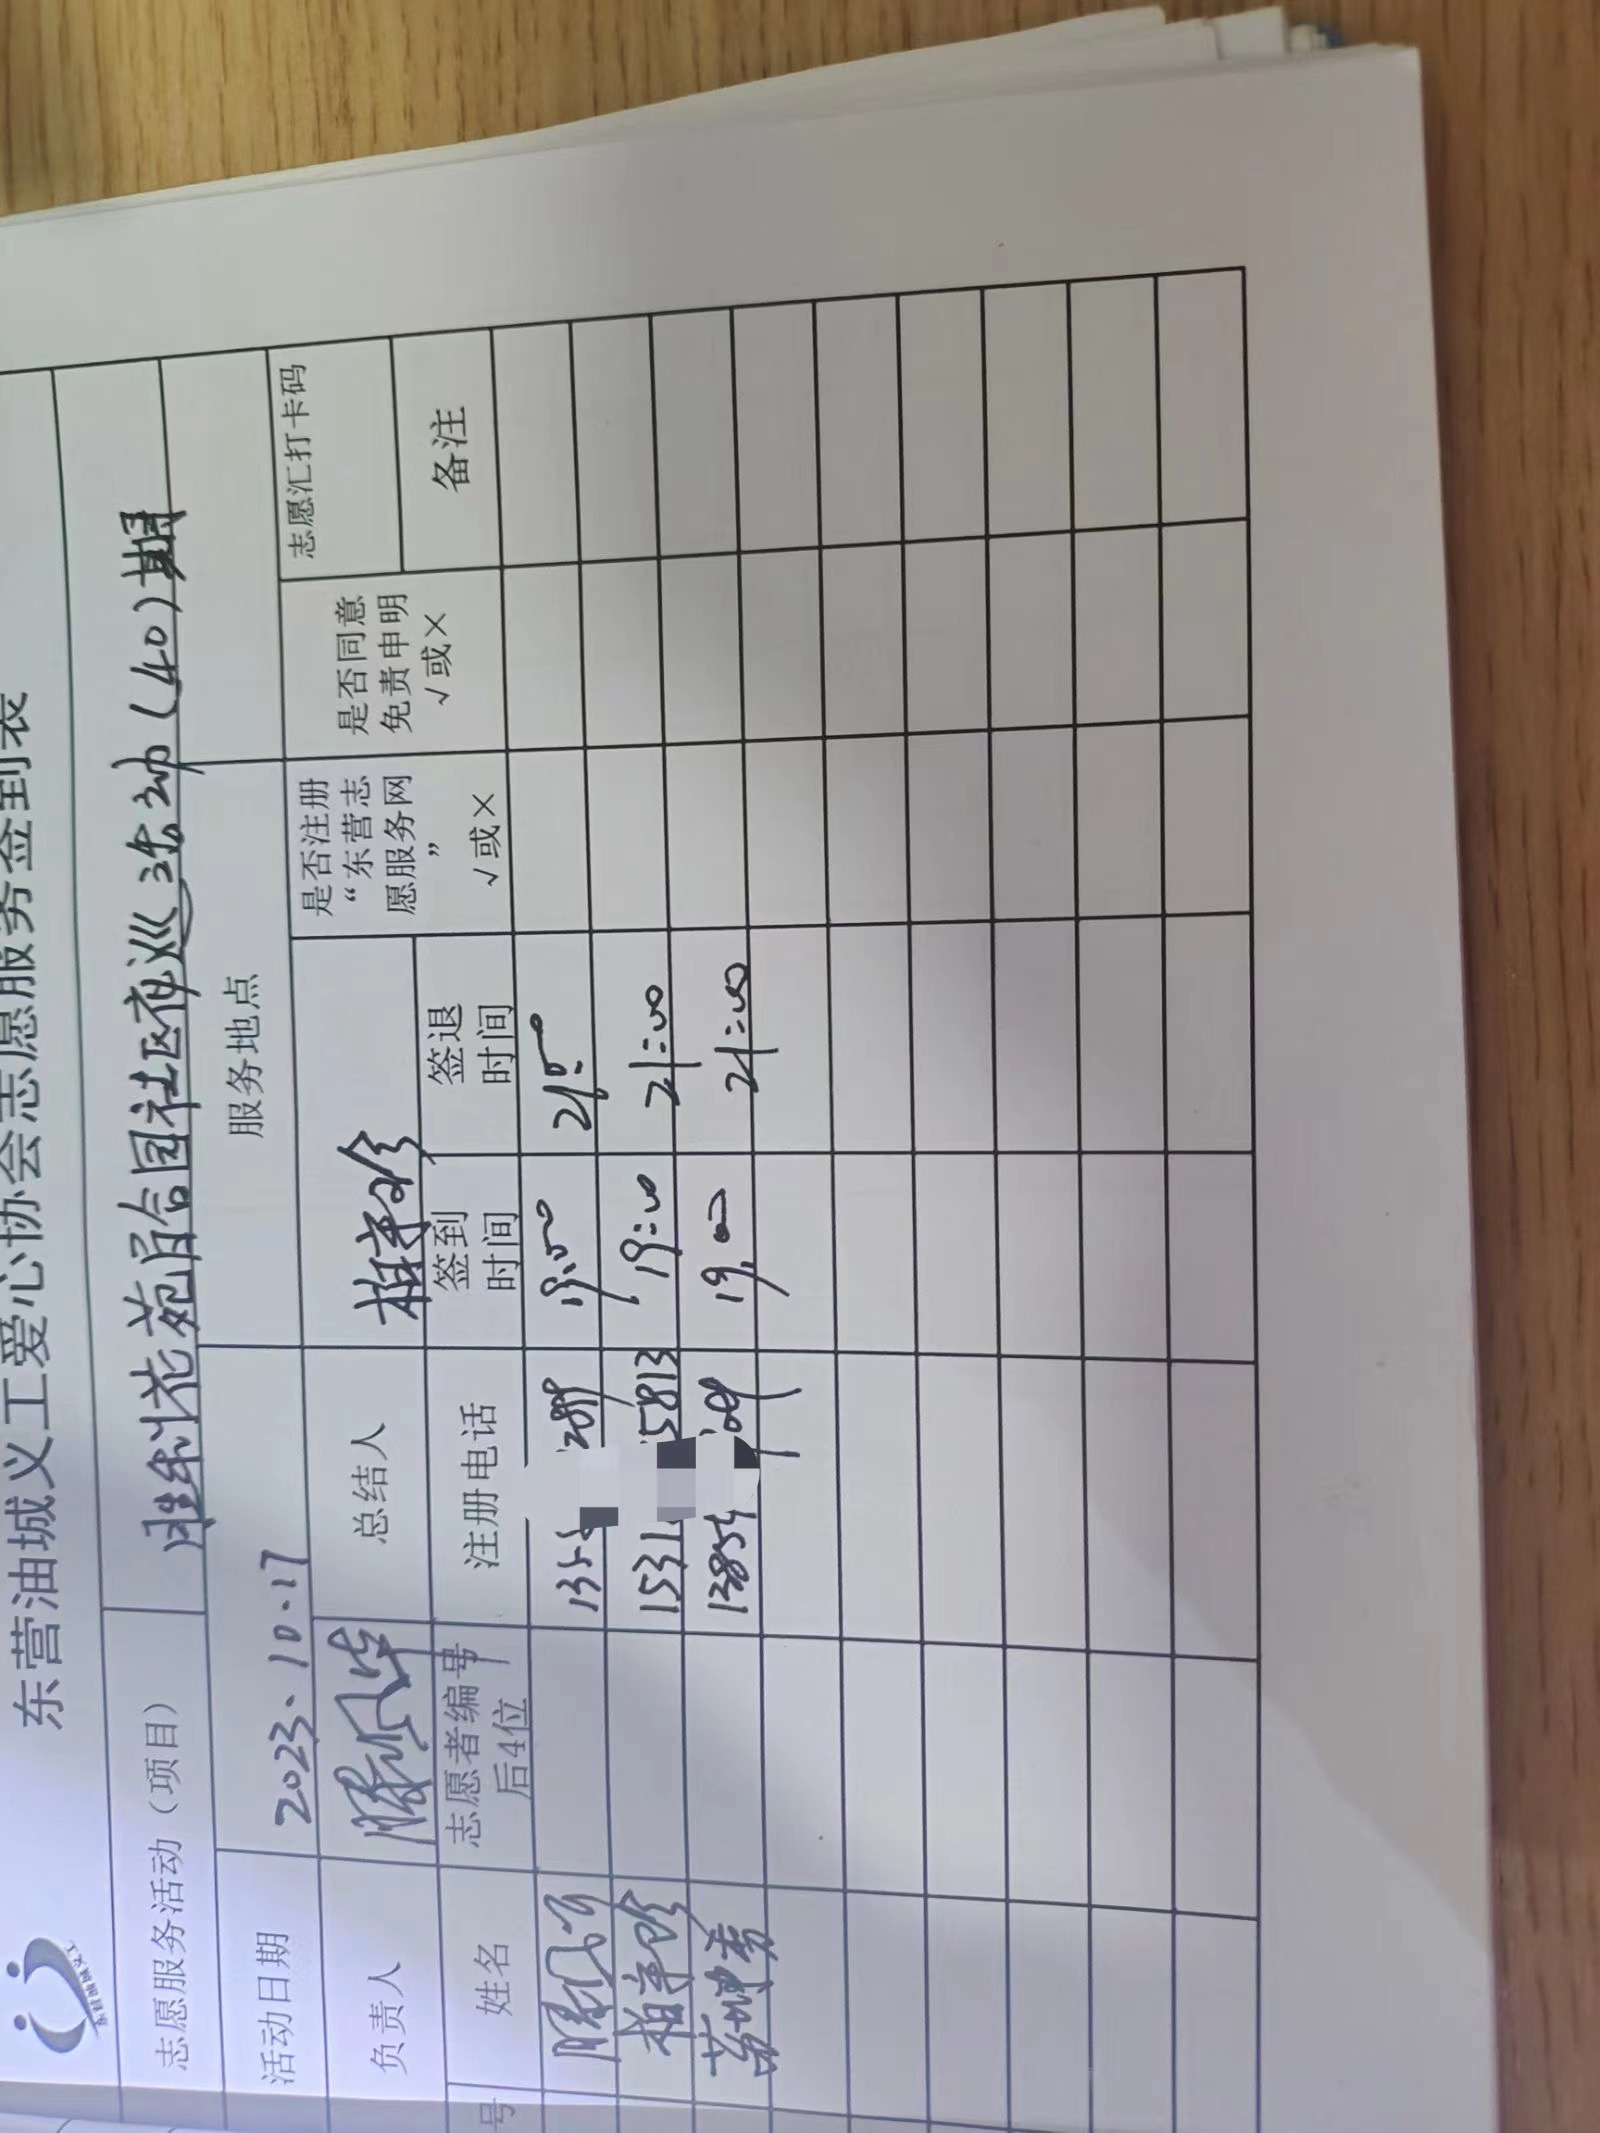 东营油城义工爱心协会志愿服务签到表
志愿服务活动（项目） 胜利花苑合园社区夜巡活动（40）期
活动日期 2023.10.17 服务地点
负责人 总结人 志愿汇打卡码
号 姓名 志愿者编号后4位 注册电话 签到时间 签退时间 是否注册“东营志愿服务网” √或× 是否同意免责申明 √或× 备注
19:00 21:00
1531 5813 19:00 21:00
1385 19:00 21:00